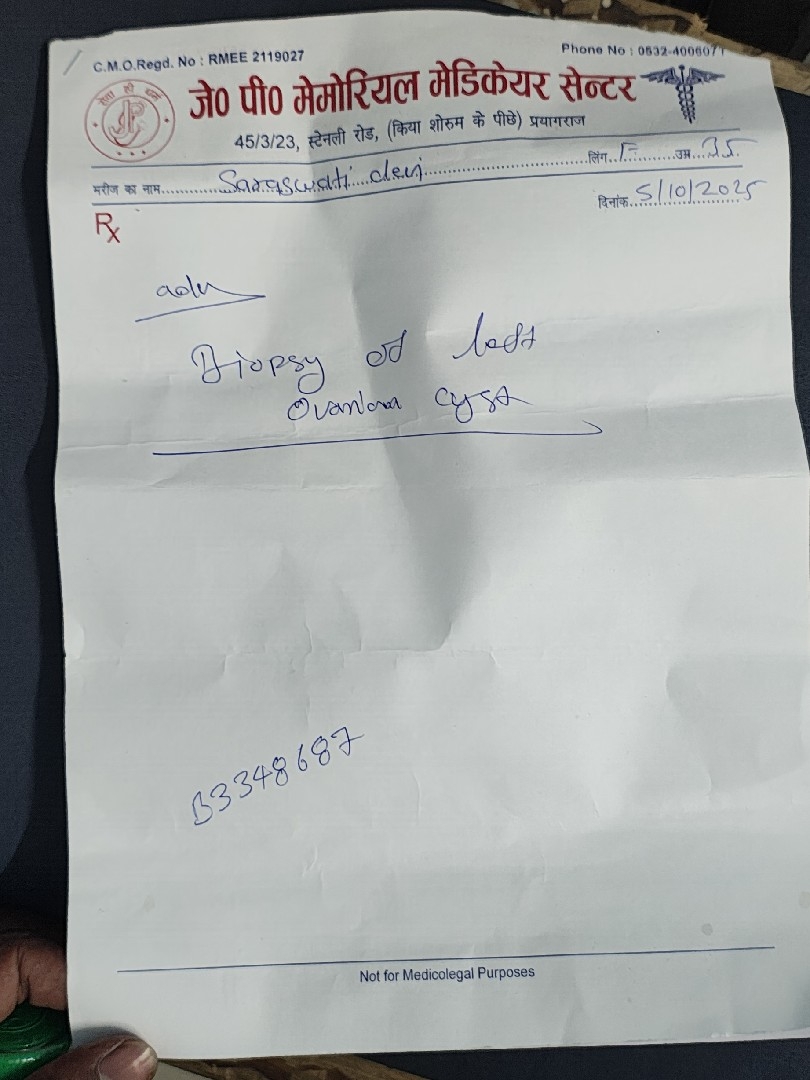 C.M.O.Regd. No : RMEE 2119027
Phone No : 0532-400607
जे0 पी0 मेमोरियल मेडिकेयर सेन्टर
45/3/23, स्टेनली रोड, (किया शोरूम के पीछे) प्रयागराज
मरीज का नाम..........Saraswati devi..........लिंग..F........उम्र..35.
दिनांक..5/10/2025
Rx
adv
Biopsy of left
Ovarian cyst
B3348687
Not for Medicolegal Purposes